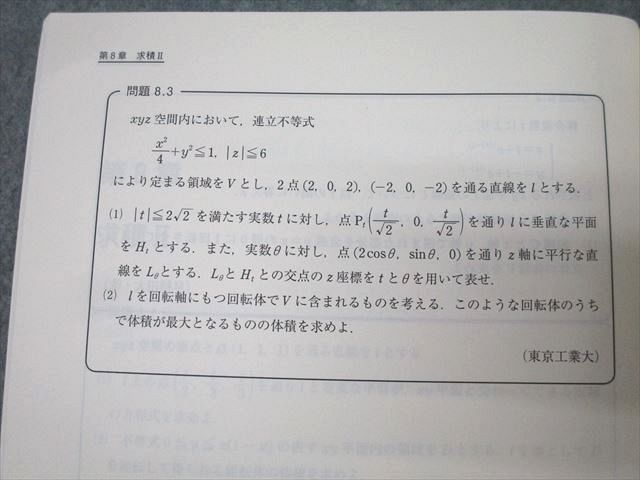 第8章 求積Ⅱ
問題8.3
xyz空間内において，連立不等式
x²/4+y²≦1，|z|≦6
により定まる領域をVとし，2点(2，0，2)，(−2，0，−2)を通る直線をlとする．
(1) |t|≦2√2を満たす実数tに対し，点Pₜ(t/√2，0，t/√2)を通りlに垂直な平面
をHₜとする．また，実数θに対し，点(2cosθ，sinθ，0)を通りz軸に平行な直
線をL_θとする．L_θとHₜとの交点のz座標をtとθを用いて表せ．
(2) lを回転軸にもつ回転体でVに含まれるものを考える．このような回転体のうち
で体積が最大となるものの体積を求めよ．
(東京工業大)